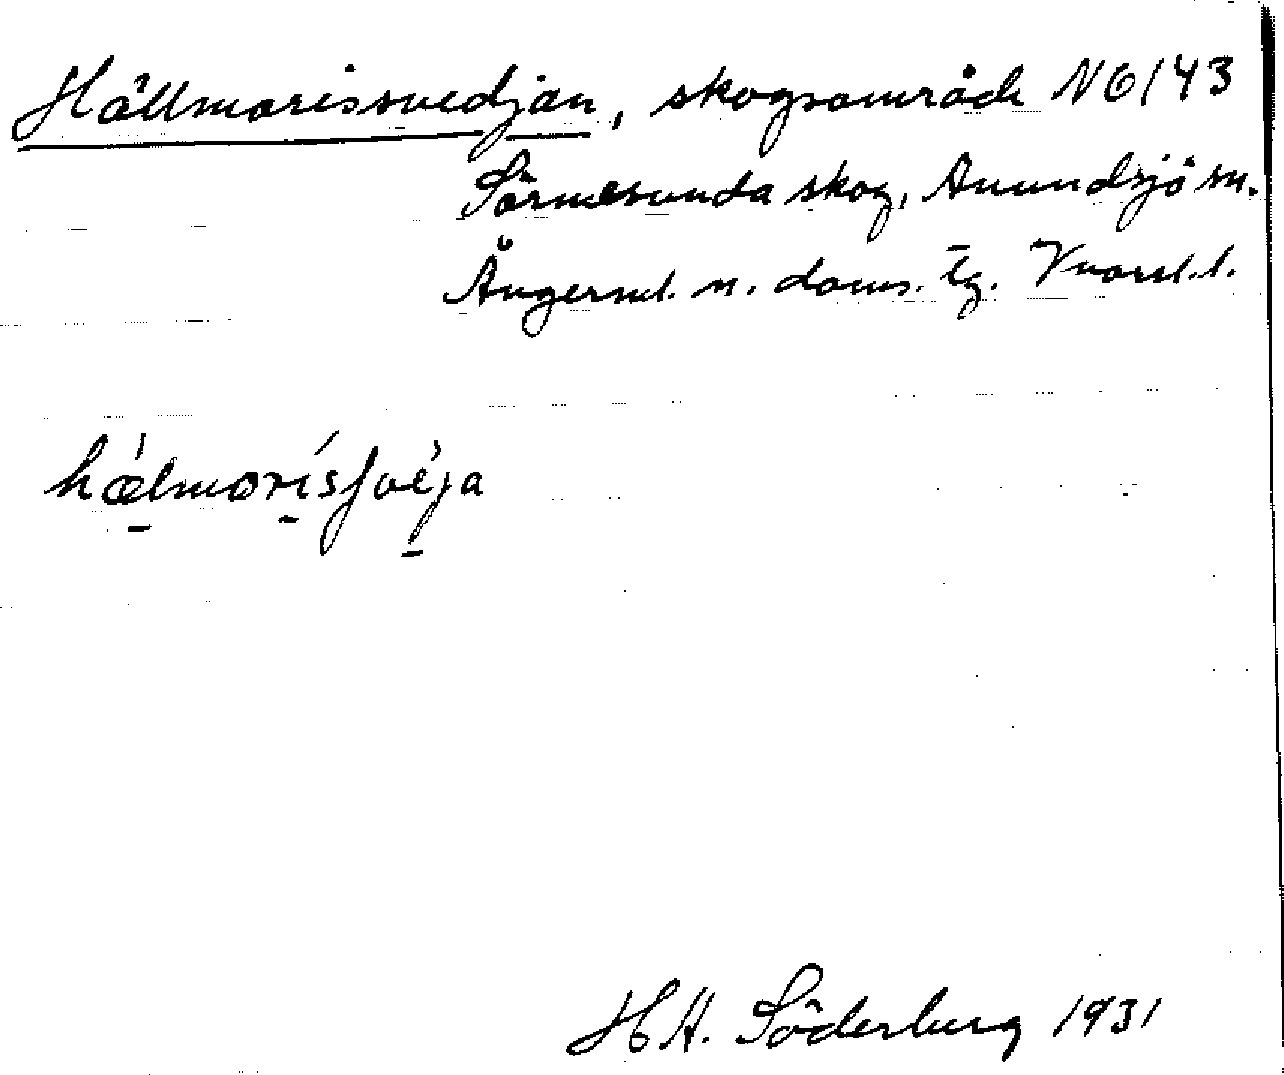 Hällmorissvedjan, skogsområde N6/43
Sörmesunda skog, Anundsjö sn.
Ångerml. n. doms. tg. Vnorrl. l.
hǽlmorísʃvéja
H A. Söderberg 1931